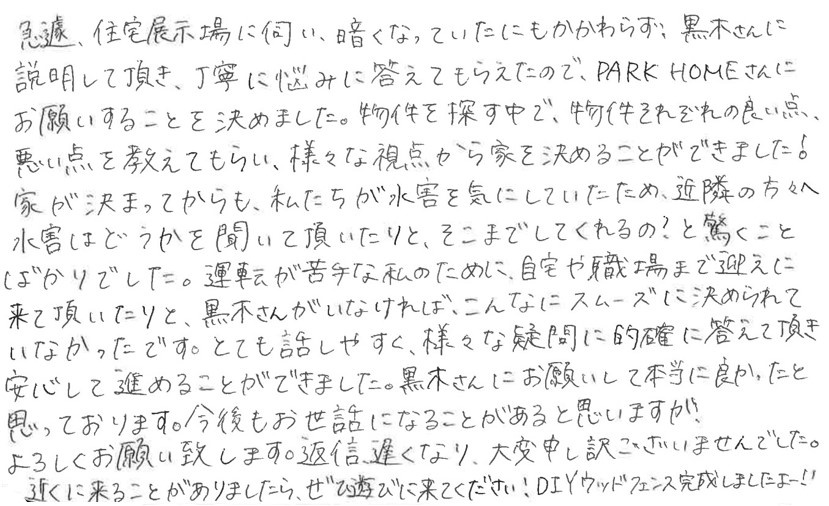 急遽、住宅展示場に伺い、暗くなっていたにもかかわらず、黒木さんに
説明して頂き、丁寧に悩みに答えてもらえたので、PARK HOMEさんに
お願いすることを決めました。物件を探す中で、物件それぞれの良い点、
悪い点を教えてもらい、様々な視点から家を決めることができました！
家が決まってからも、私たちが水害を気にしていたため、近隣の方々へ
水害はどうかを聞いて頂いたりと、そこまでしてくれるの？と驚くこと
ばかりでした。運転が苦手な私のために、自宅や職場まで迎えに
来て頂いたりと、黒木さんがいなければ、こんなにスムーズに決められて
いなかったです。とても話しやすく、様々な疑問に的確に答えて頂き
安心して進めることができました。黒木さんにお願いして本当に良かったと
思っております。今後もお世話になることがあると思いますが、
よろしくお願い致します。返信、遅くなり、大変申し訳ございませんでした。
近くに来ることがありましたら、ぜひ遊びに来てください！DIYウッドフェンス完成しましたよー！！